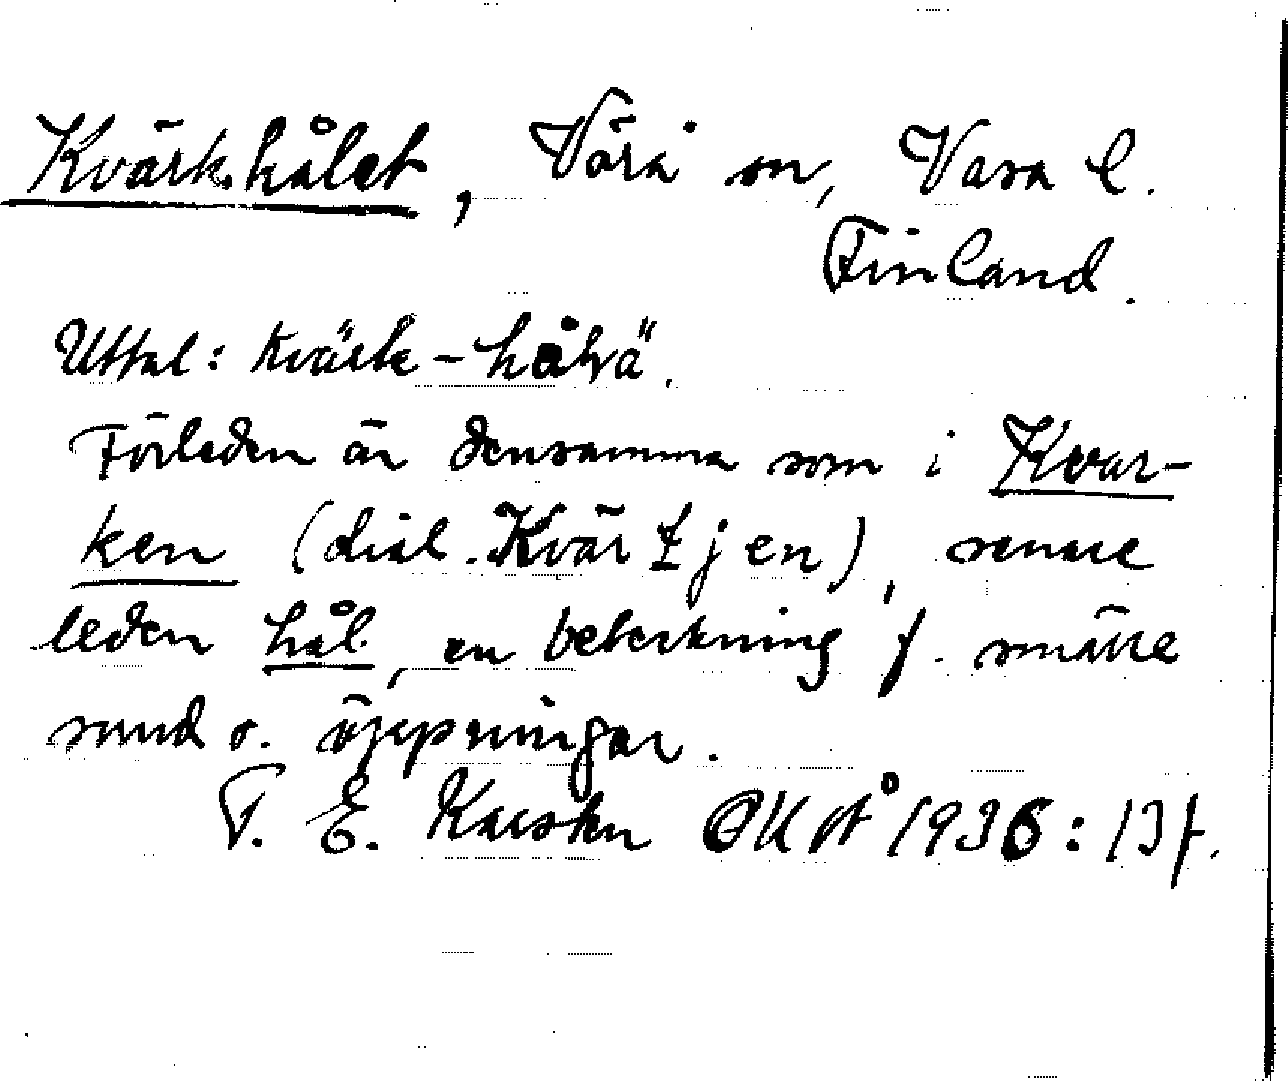 Kvärkhålet, Vörå sn, Vasa l.
Finland.
Uttal: kvärk-hålä.
Förleden är densamma som i Kvar-
ken (dial. Kvärtjen), senare
leden hål, en beteckning f. smärre
sund o. öppningar.
T. E. Karsten OUÅ 1936: 13 f.